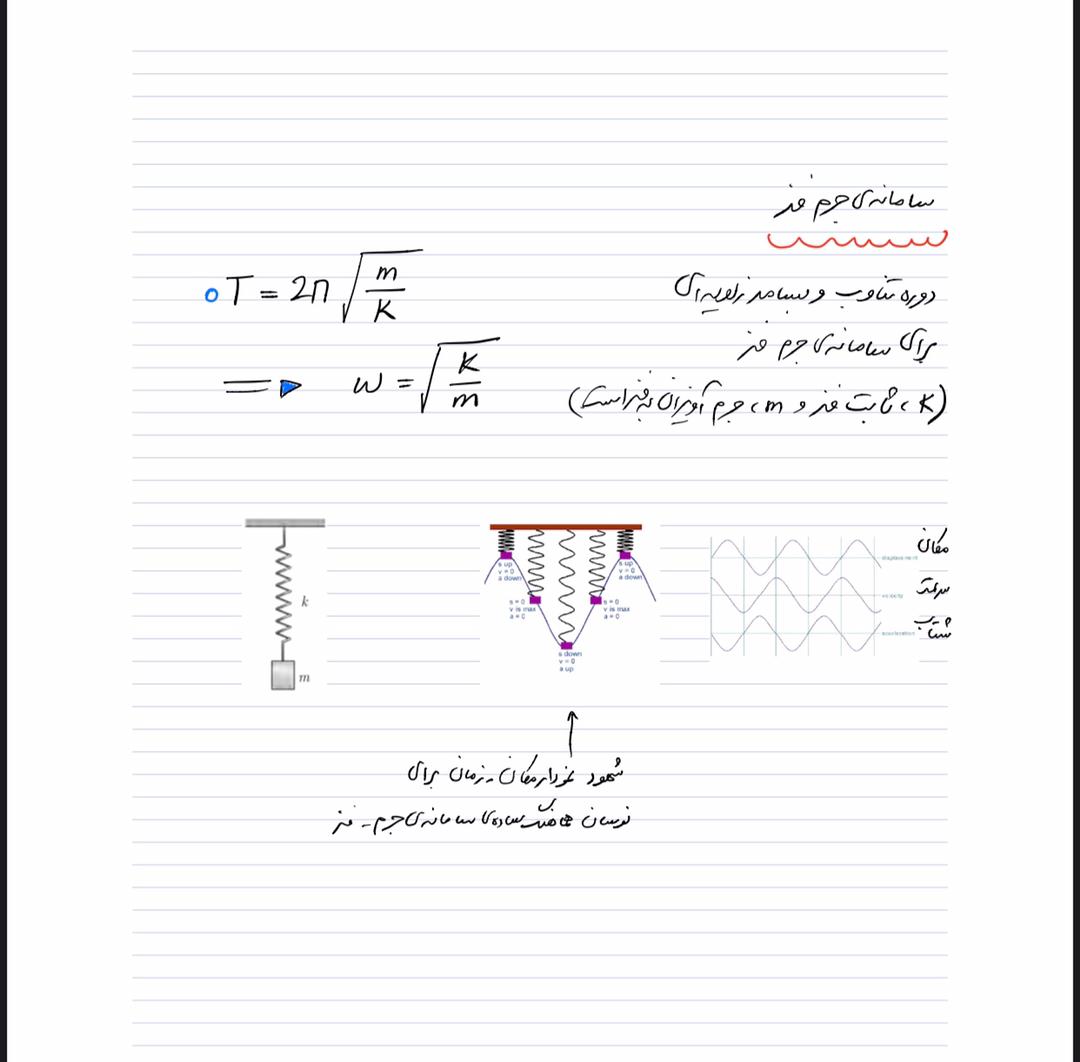 سامانه‌ی جرم فنر
دوره تناوب و بسامد زاویه‌ای
T = 2π √(m/K)
برای سامانه‌ی جرم فنر
(K، ثابت فنر و m، جرم آویزان به فنر است)
⇒ ω = √(K/m)
k
m
s up
v = 0
a down
s = 0
v is max
a = 0
s down
v = 0
a up
s = 0
v is max
a = 0
s up
v = 0
a down
مکان
displacement
سرعت
velocity
شتاب
acceleration
شهود نمودار مکان - زمان برای
نوسان هماهنگ ساده‌ی سامانه‌ی جرم - فنر